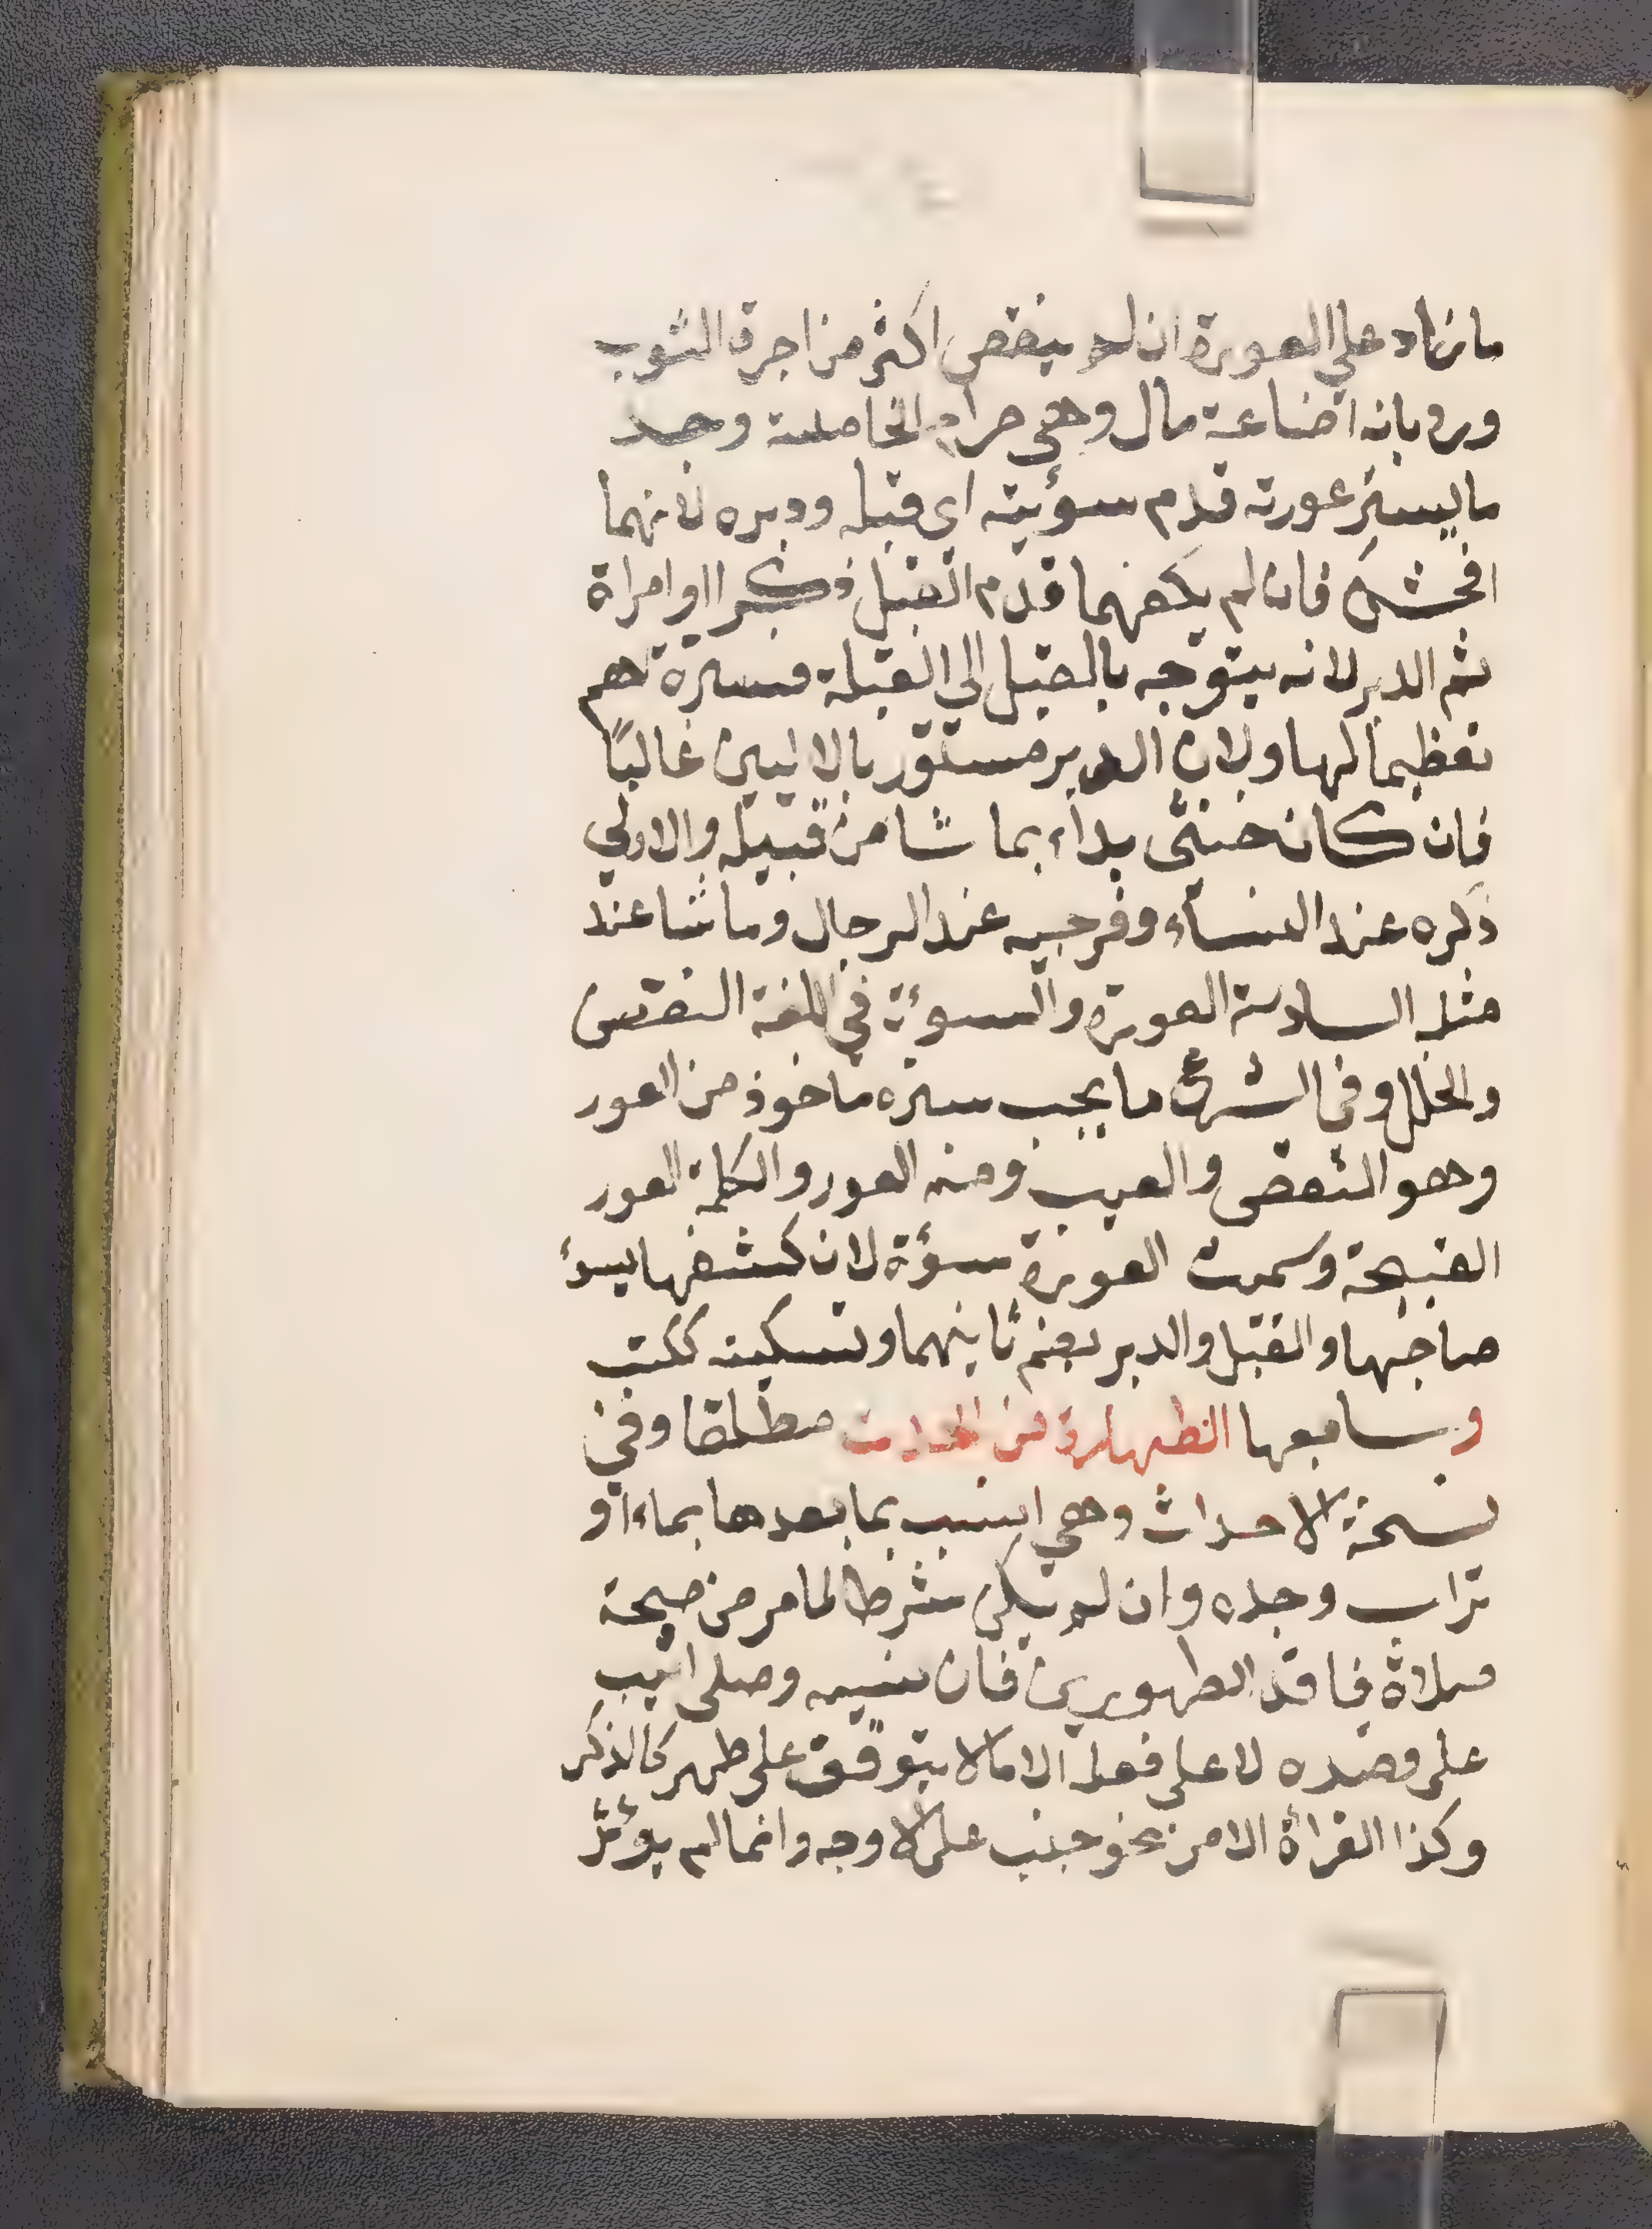 ما زاد علي العورة ان لم ينقص اكثر من اجرة الثوب
ورد بانه اضاعة مال وهي حرام الخامسة وجد
ما يستر عورته قدم سوٴيته اي قبله ودبره لانهما
افحش فان لم يكفهما قدم القبل ذكرا او امراة
ثم الدبر لانه يتوجه بالقبل الي القبلة فستره اهم
تعظيما لها ولان الدبر مستور بالاليين غالبًا
فان كان خنثى بداء بما شا من قبيله والاولي
ذكره عند النساء وفرجه عند الرجال وما شا عند
مثله السادسة العورة والسوءة في اللغة النقص
والخلل وفي الشرع ما يجب ستره ماخوذ من العور
وهو النقص والعيب ومنه العور والكلمة العور
القبيحة وسميت العورة سوٴة لان كشفها يسؤ
صاحبها والقبل والدبر بضم ثانيهما وتسكينه ككتب
وسابعها الطهارة من الحدث مطلقا وفي
نسخة الاحداث وهي انسب بما بعدها بماء او
تراب وجده وان لم يكن شرطا لما مر من صحة
صلاة فاقد الطهورين فان نسيه وصلى اثيب
على قصده لا على فعله الا ما لا يتوقف على طهر كالذكر
وكذا القراٴة الا من نحو جنب على الاوجه وانما لم يؤثر